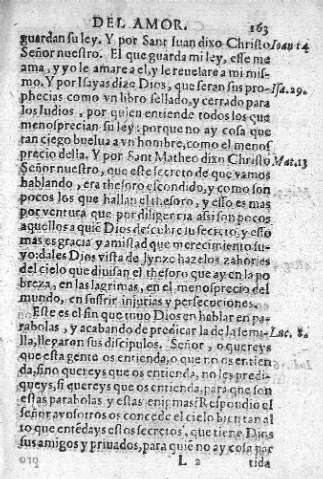 DEL AMOR. 163
guardan su ley. Y por Sant Iuan dixo Christo Ioan 14
Señor nuestro. El que guarda mi ley, esse me
ama, y yo le amare a el, y le reuelare a mi mis-
mo. Y por Isayas dize Dios, que seran sus pro- Isa. 29.
phecias como vn libro sellado, y cerrado para
los Iudios, por quien entiende todos los que
menosprecian su ley: porque no ay cosa que
tan ciego buelua a vn hombre, como el menos
precio della. Y por Sant Matheo dixo Christo Mat. 13
Señor nuestro, que este secreto de que vamos
hablando, era thesoro escondido, y como son
pocos los que hallan el thesoro, y esso es mas
por ventura que por diligencia assi son pocos
aquellos a quiē Dios descubre su secreto, y esso
mas es gracia y amistad que merecimiento su-
yo: dales Dios vista de Lynze hazelos zahories
del cielo que diuisan el thesoro que ay en la po
breza, en las lagrimas, en el menosprecio del
mundo, en suffrir injurias y persecuciones.
Este es el fin que tuuo Dios en hablar en pa-
rabolas, y acabando de predicar la de la semi- Luc. 8.
lla, llegaron sus discipulos. Señor, o quereys
que esta gente os entienda, o que no os entien
da, sino quereys que os entienda, no les predi-
queys, si quereys que os entienda, para que son
estas parabolas y estas enigmas? Respondio el
señor a vosotros os concede el cielo bien tan al
to que entēdays estos secretos, que tiene Dios
sus amigos y priuados, para quiē no ay cosa par
L 2 tida